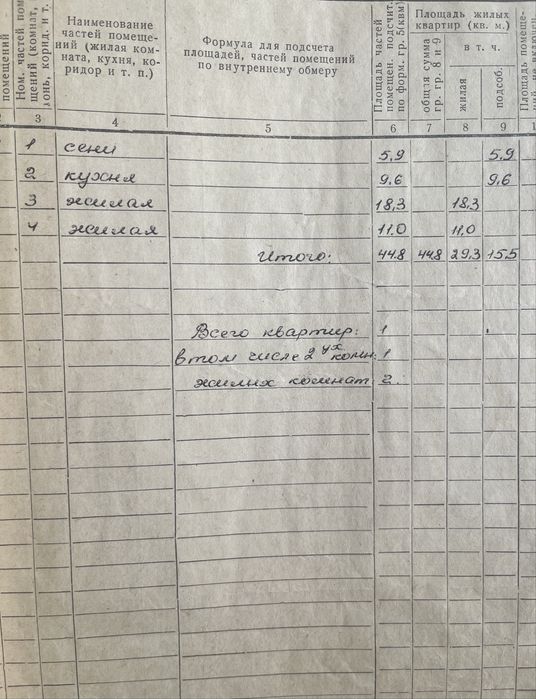 помещений
Ном. частей пом
щений (комнат,
онь, корид. и т.
Наименование
частей помеще-
ний (жилая ком-
ната, кухня, ко-
ридор и т. п.)
Формула для подсчета
площадей, частей помещений
по внутреннему обмеру
Площадь частей
помещен. подсчит.
по форм. гр. 5(квм)
Площадь жилых
квартир (кв. м.)
общая сумма
гр. гр. 8 и 9
в т. ч.
жилая
подсоб.
Площадь помеще-
3 4 5 6 7 8 9 1
1 сени 5,9 5,9
2 кухня 9,6 9,6
3 жилая 18,3 18,3
4 жилая 11,0 11,0
Итого: 44.8 44.8 29,3 15,5
Всего квартир: 1
в том числе 2ух комн: 1
жилых комнат: 2